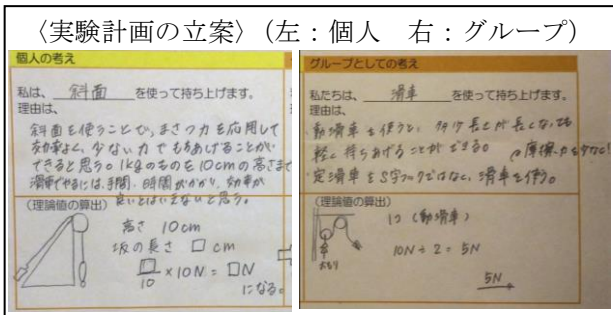 〈実験計画の立案〉(左：個人　右：グループ)
個人の考え
私は、 斜面 を使って持ち上げます。
理由は、
斜面を使うことで、まさつ力を応用して
効率よく、少ない力でもちあげることが
できると思う。1kgのものを10cmの高さまで
滑車でやるには、手間、時間がかかり、効率が
良いとはいえないと思う。
(理論値の算出)
高さ 10cm
坂の長さ □cm
□/10 × 10N = □N
になる。
グループとしての考え
私たちは、 滑車 を使って持ち上げます。
理由は、
動滑車を使うと、 長さが長くなっても
軽く持ちあげることができる。
摩擦力を少なく
定滑車をS字フックではなく、滑車を使う。
(理論値の算出)
1つ (動滑車)
10N÷2=5N
5N
おもり